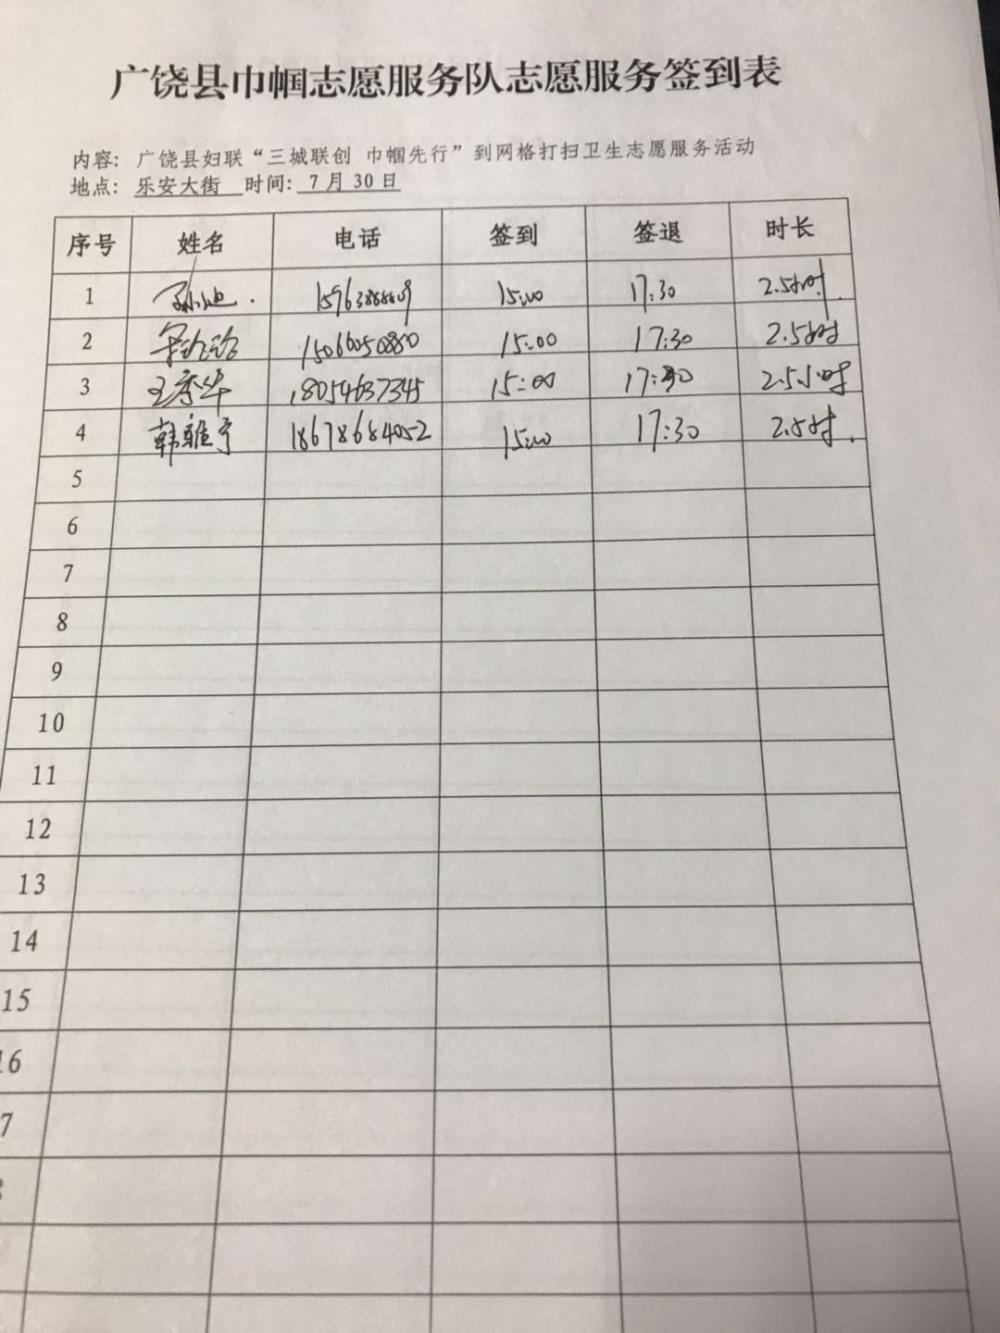 广饶县巾帼志愿服务队志愿服务签到表
内容: 广饶县妇联“三城联创 巾帼先行”到网格打扫卫生志愿服务活动
地点: 乐安大街 时间: 7月30日
序号 姓名 电话 签到 签退 时长
1 孙迪. 15:00 17:30 2.5小时.
2 15066050880 15:00 17:30 2.5小时
3 王秀华 18054637345 15:00 17:30 2.5小时
4 韩雅宁 18678684052 15:00 17:30 2.5小时.
5
6
7
8
9
10
11
12
13
14
15
16
7